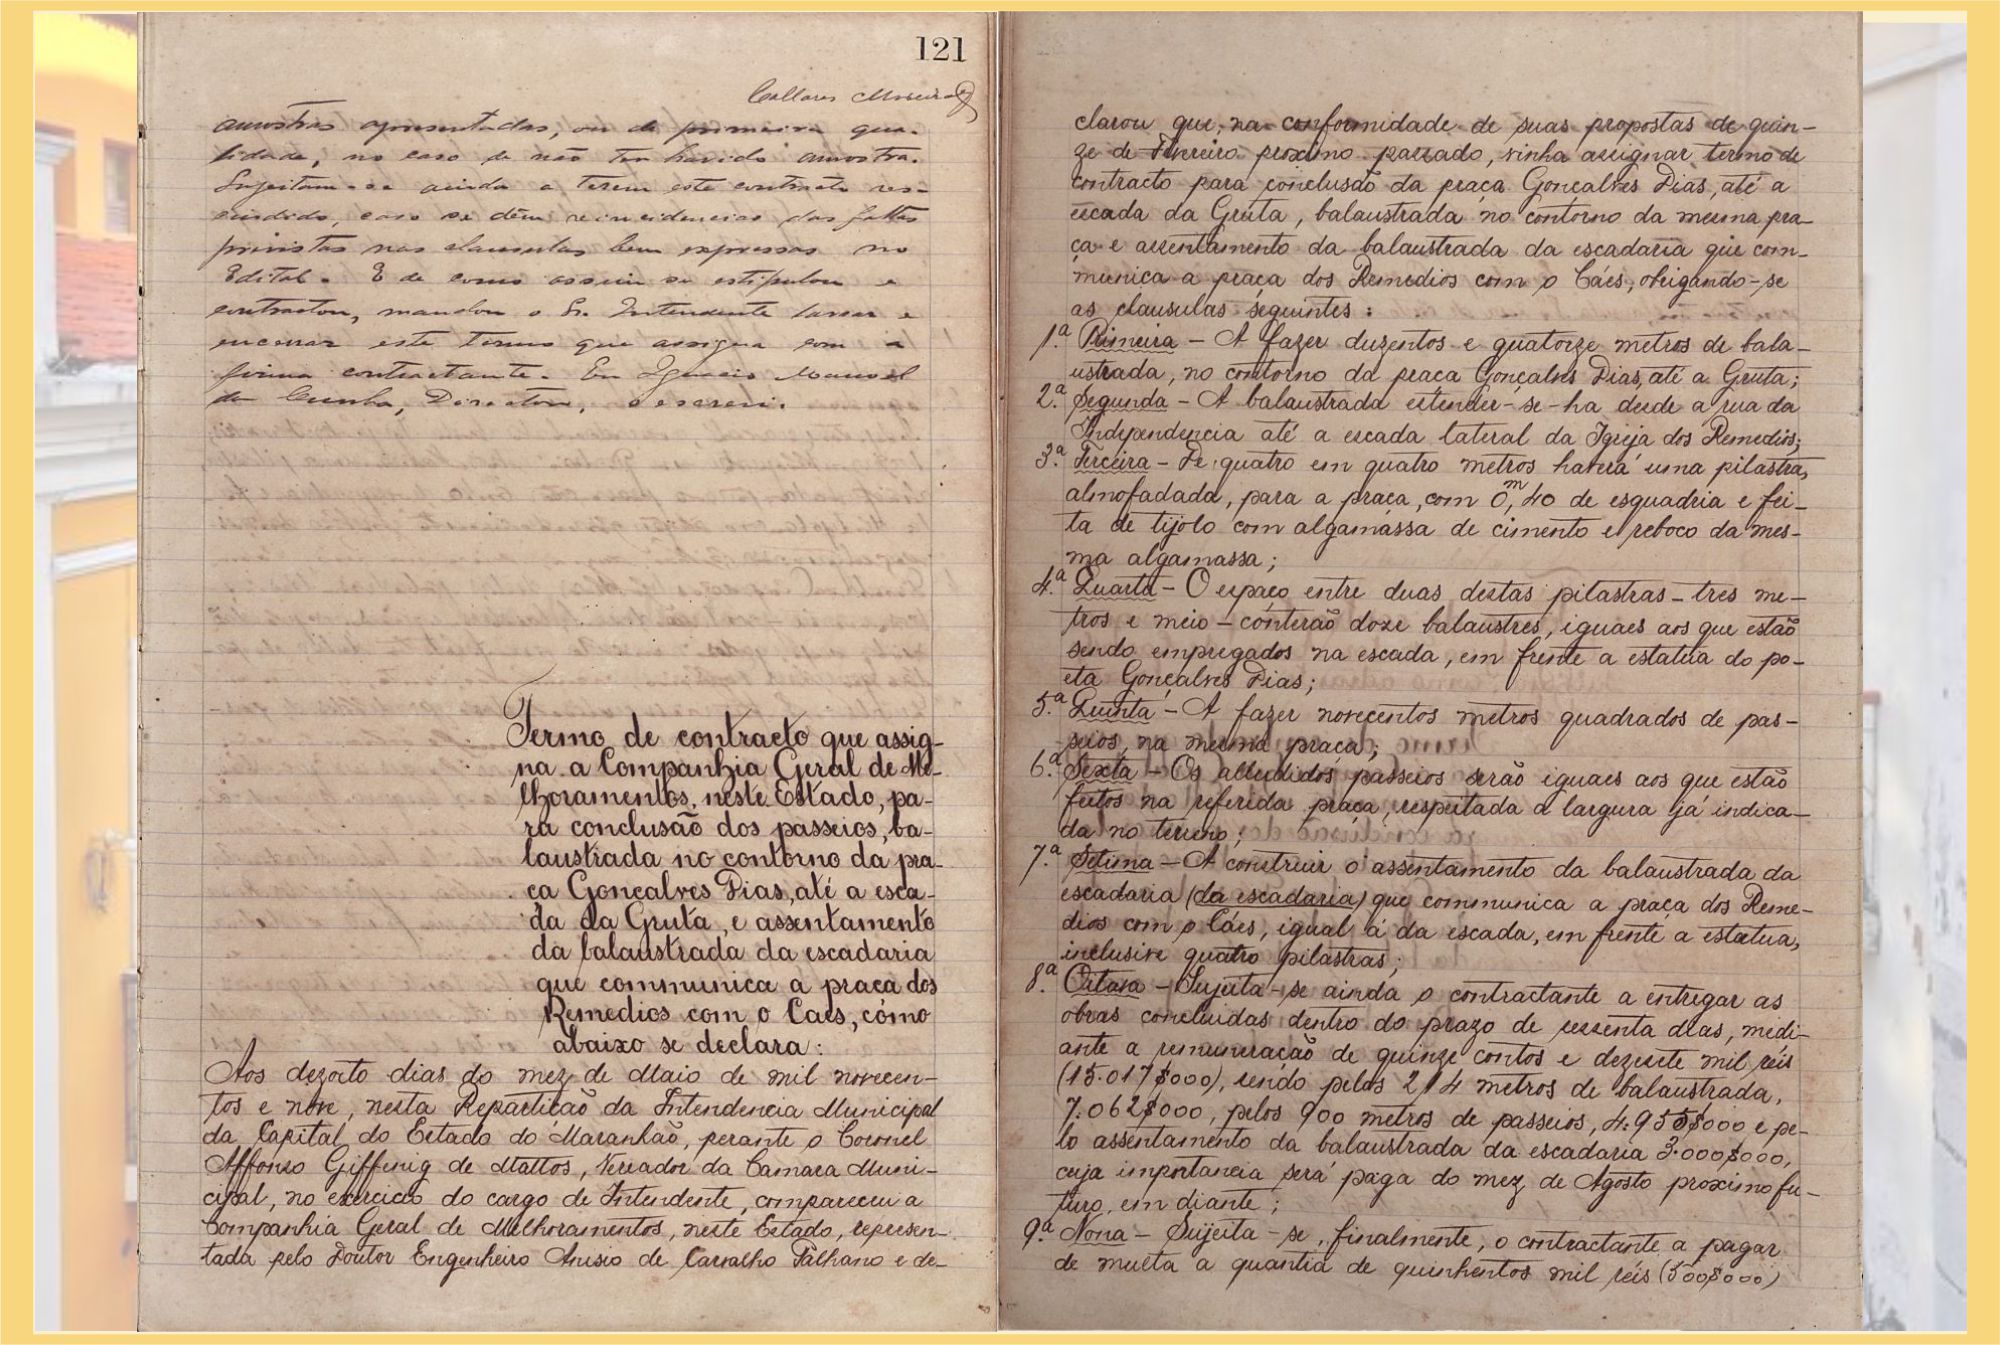 121
Collares Moreira
amostras apresentadas, ou de primeira qua-
lidade, no caso de não ter havido amostra.
Sujeitam-se ainda a terem este contracto res-
cindido, caso se dêm reincidencias das faltas
previstas nas clausulas bem expressas no
Edital. E de como assim se estipulou e
contractou, mandou o Sr. Intendente lavrar e
encerrar este termo que assigna com a
firma contractante. Eu Ignacio Manoel
da Cunha, Director, o escrevi.
Termo de contracto que assig-
na a Companhia Geral de Me-
lhoramentos, neste Estado, pa-
ra conclusão dos passeios, ba-
laustrada no contorno da pra-
ça Gonçalves Dias, até a esca-
da da Gruta, e assentamento
da balaustrada da escadaria
que communica a praca dos
Remedios com o Caes, cómo
abaixo se declara:
Aos dezoito dias do mez de Maio de mil novecen-
tos e nove, nesta Repartição da Intendencia Municipal
da Capital do Estado do Maranhão, perante o Coronel
Affonso Giffenig de Mattos, Vereador da Camara Muni-
cipal, no exercicio do cargo de Intendente, compareceu a
Companhia Geral de Melhoramentos, neste Estado, represen-
tada pelo Doutor Engenheiro Anisio de Carvalho Palhano e de-
clarou que, na conformidade de suas propostas de quin-
ze de Fevereiro proximo passado, vinha assignar termo de
contracto para conclusão da praça Gonçalves Dias, até a
escada da Gruta, balaustrada no contorno da mesma pra-
ça e assentamento da balaustrada da escadaria que com-
munica a praça dos Remedios com o Cáes, obrigando-se
as clausulas seguintes:
1.ª Primeira - A fazer duzentos e quatorze metros de bala-
ustrada, no contorno da praça Gonçalves Dias, até a Gruta;
2.ª Segunda - A balaustrada estender-se-ha desde a rua da
Independencia até a escada lateral da Igreja dos Remedios;
3.ª Terceira - De quatro em quatro metros haverá uma pilastra,
almofadada, para a praça, com 0,m40 de esquadria e fei-
ta de tijolo com algamassa de cimento e reboco da mes-
ma algamassa;
4.ª Quarta - O espaço entre duas destas pilastras - tres me-
tros e meio - conterão doze balaustres, iguaes aos que estão
sendo empregados na escada, em frente a estatua do po-
eta Gonçalves Dias;
5.ª Quinta - A fazer novecentos metros quadrados de pas-
seios, na mesma praça;
6.ª Sexta - Os alludidos passeios serão iguaes aos que estão
feitos na referida praça, respeitada a largura já indica-
da no terreno;
7.ª Setima - A construir o assentamento da balaustrada da
escadaria (da escadaria) que communica a praça dos Reme-
dios com o Cáes, igual á da escada, em frente a estatua,
inclusive quatro pilastras;
8.ª Oitava - Sujeita-se ainda o contractante a entregar as
obras concluidas dentro do prazo de sessenta dias, medi-
ante a remuneração de quinze contos e dezesete mil réis
(15.017$000), sendo pelos 214 metros de balaustrada,
7.062$000, pelos 900 metros de passeios, 4.955$000 e pe-
lo assentamento da balaustrada da escadaria 3.000$000,
cuja importancia será paga do mez de Agosto proximo fu-
turo, em diante;
9.ª Nona - Sujeita-se, finalmente, o contractante a pagar
de multa a quantia de quinhentos mil réis (500$000)